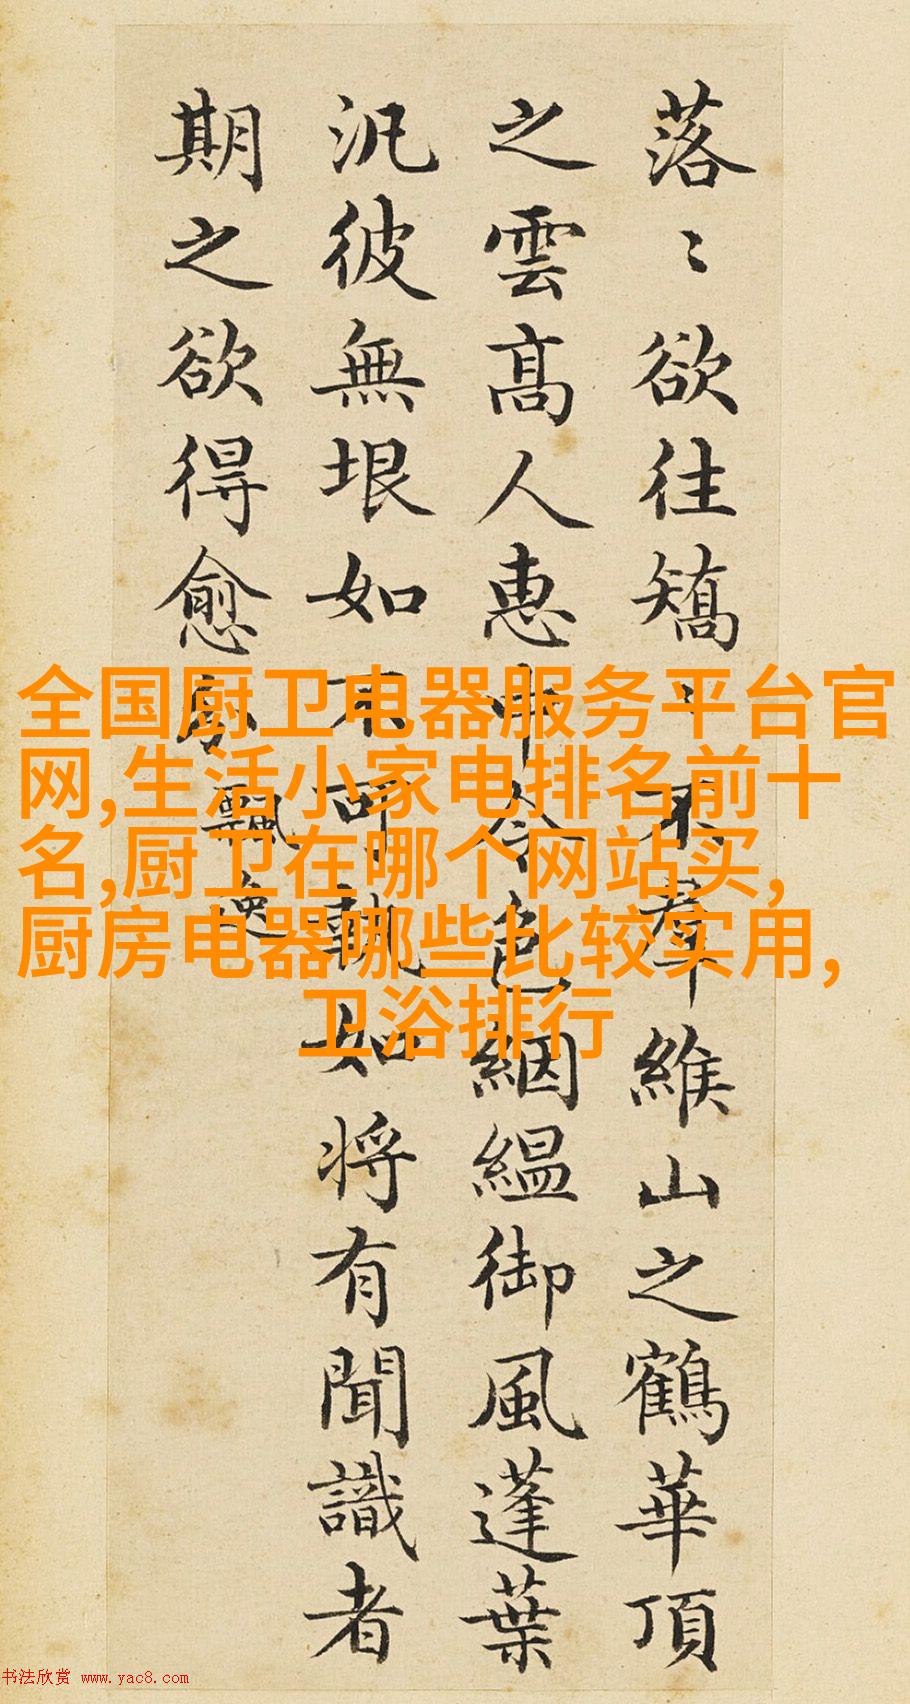 落〻欲往矯〻不羣緱山之鶴華頂
之雲高人惠中令色絪縕御風蓬葉
汎彼無垠如不可執如將有聞識者
期之欲得愈分
飄逸
全国厨卫电器服务平台官
网,生活小家电排名前十
名,厨卫在哪个网站买,
厨房电器哪些比较实用,
卫浴排行
书法欣赏 www.yac8.com